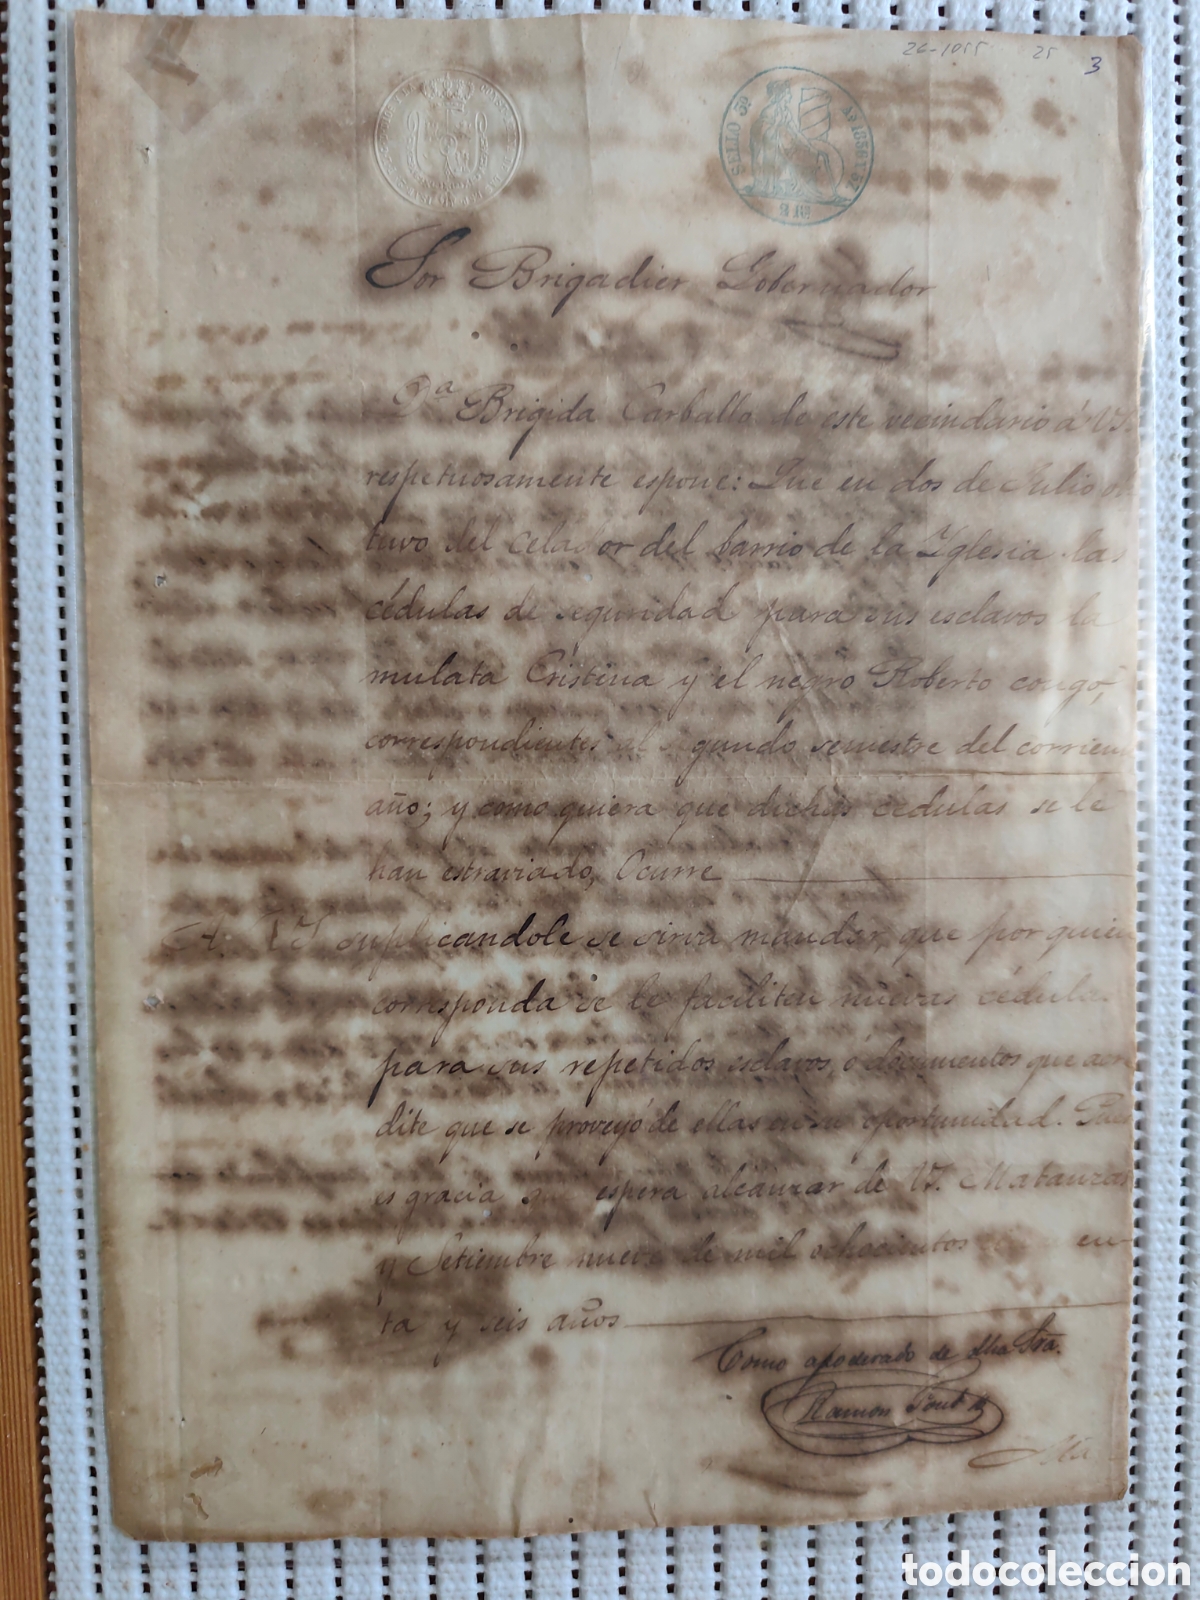 26-1055 25 3
SELLO 3º Aº 1856 Y 57
Sor Brigadier Gobernador
Dª Brigida Carballo de este vecindario á VS.
respetuosamente espone: Que en dos de Julio ob
tuvo del celador del barrio de la Yglesia las
cédulas de seguridad para sus esclavos la
mulata Cristina y el negro Roberto congo,
correspondientes al segundo semestre del corrien
año; y como quiera que dichas cédulas se le
han estraviado, Ocurre
A. VS suplicandole se sirva mandar, que por quien
corresponda se le faciliten nuevas cédulas
para sus repetidos esclavos, ó documentos que acre
dite que se proveyó de ellas en su oportunidad. Pues
es gracia que espera alcanzar de VS. Matanzas
y Setiembre nueve de mil ochocientos en
ta y seis años
Como apoderado de dha Sra.
Ramon Font
todocoleccion